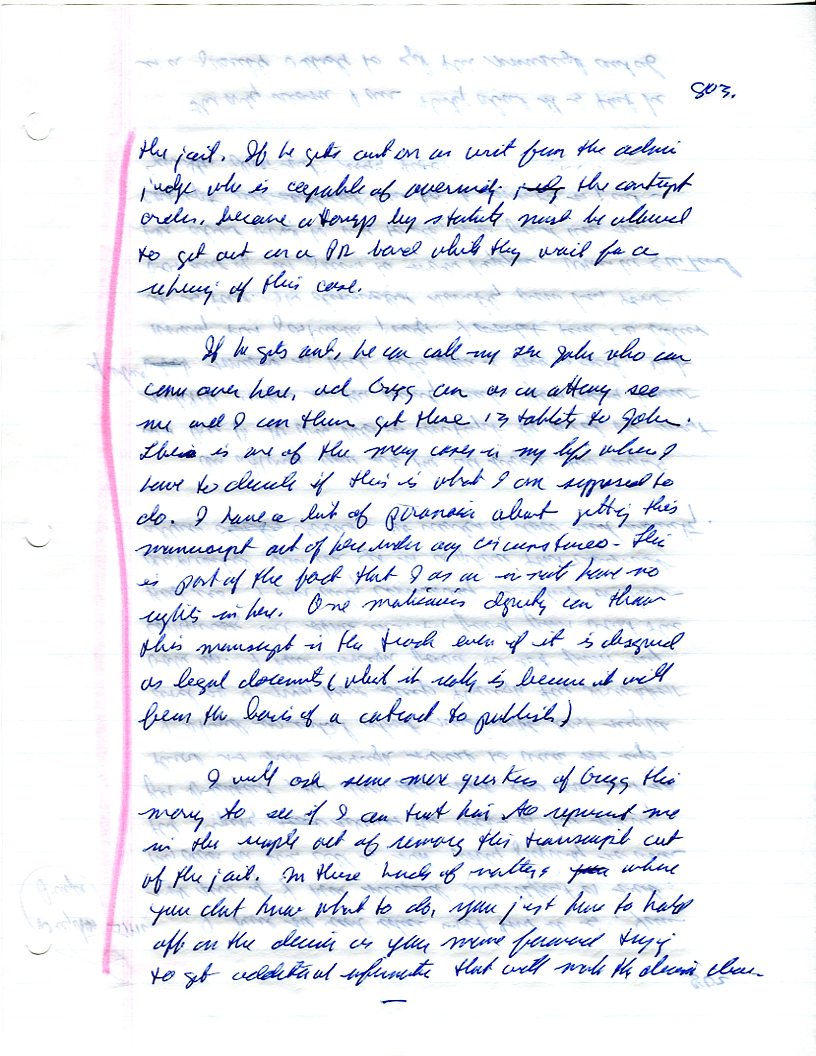 803.
the jail. If he gets out on a writ from the admin
judge who is capable of overriding judge the contempt
order, because attorneys by statute must be allowed
to get out on a PR bond while they wait for a
rehearing of this case.
If he gets out, he can call my son John who can
come over here, and Gregg can as an attorney see
me and I can then get these 13 tablets to John.
This is one of the many cases in my life where I
have to decide if this is what I am supposed to
do. I have a lot of paranoia about getting this
manuscript out of here under any circumstances. This
is part of the fact that I as an inmate have no
rights in here. One malicious deputy can throw
this manuscript in the trash even if it is designed
as legal documents (what it really is because it will
form the basis of a contract to publish)
I will ask some more questions of Gregg this
morning to see if I can trust him to represent me
in the simple act of removing this transcript out
of the jail. In these kinds of matters where
you don't know what to do, you just have to hold
off on the decision as you move forward trying
to get additional information that will make the decision clear.